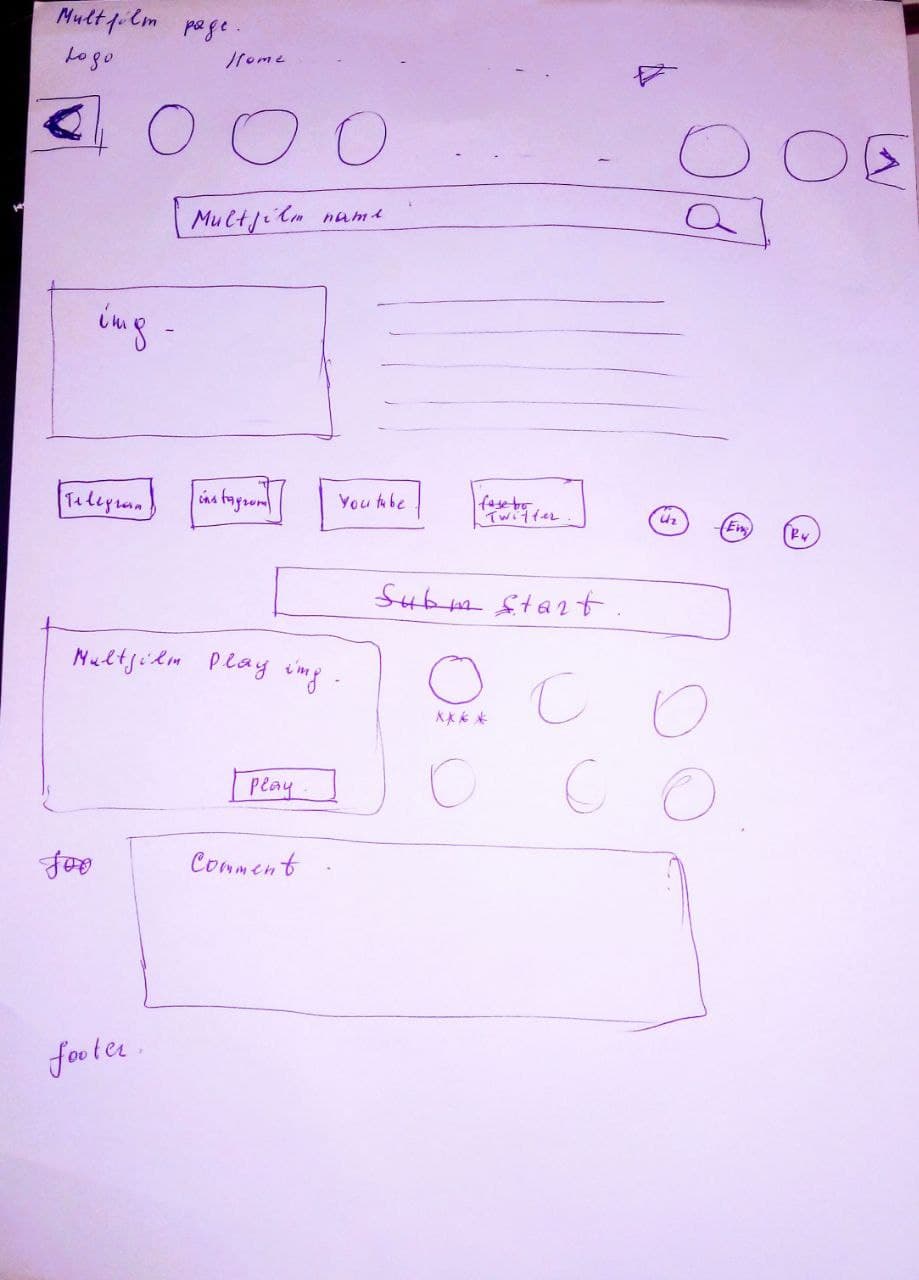 Multfilm page.
Logo Home
Multfilm name
img -
Telegram instagram Youtube Twitter.
Uz Eng Ru
Subm Start.
Multfilm Play img.
Play.
foo
Comment.
footer.